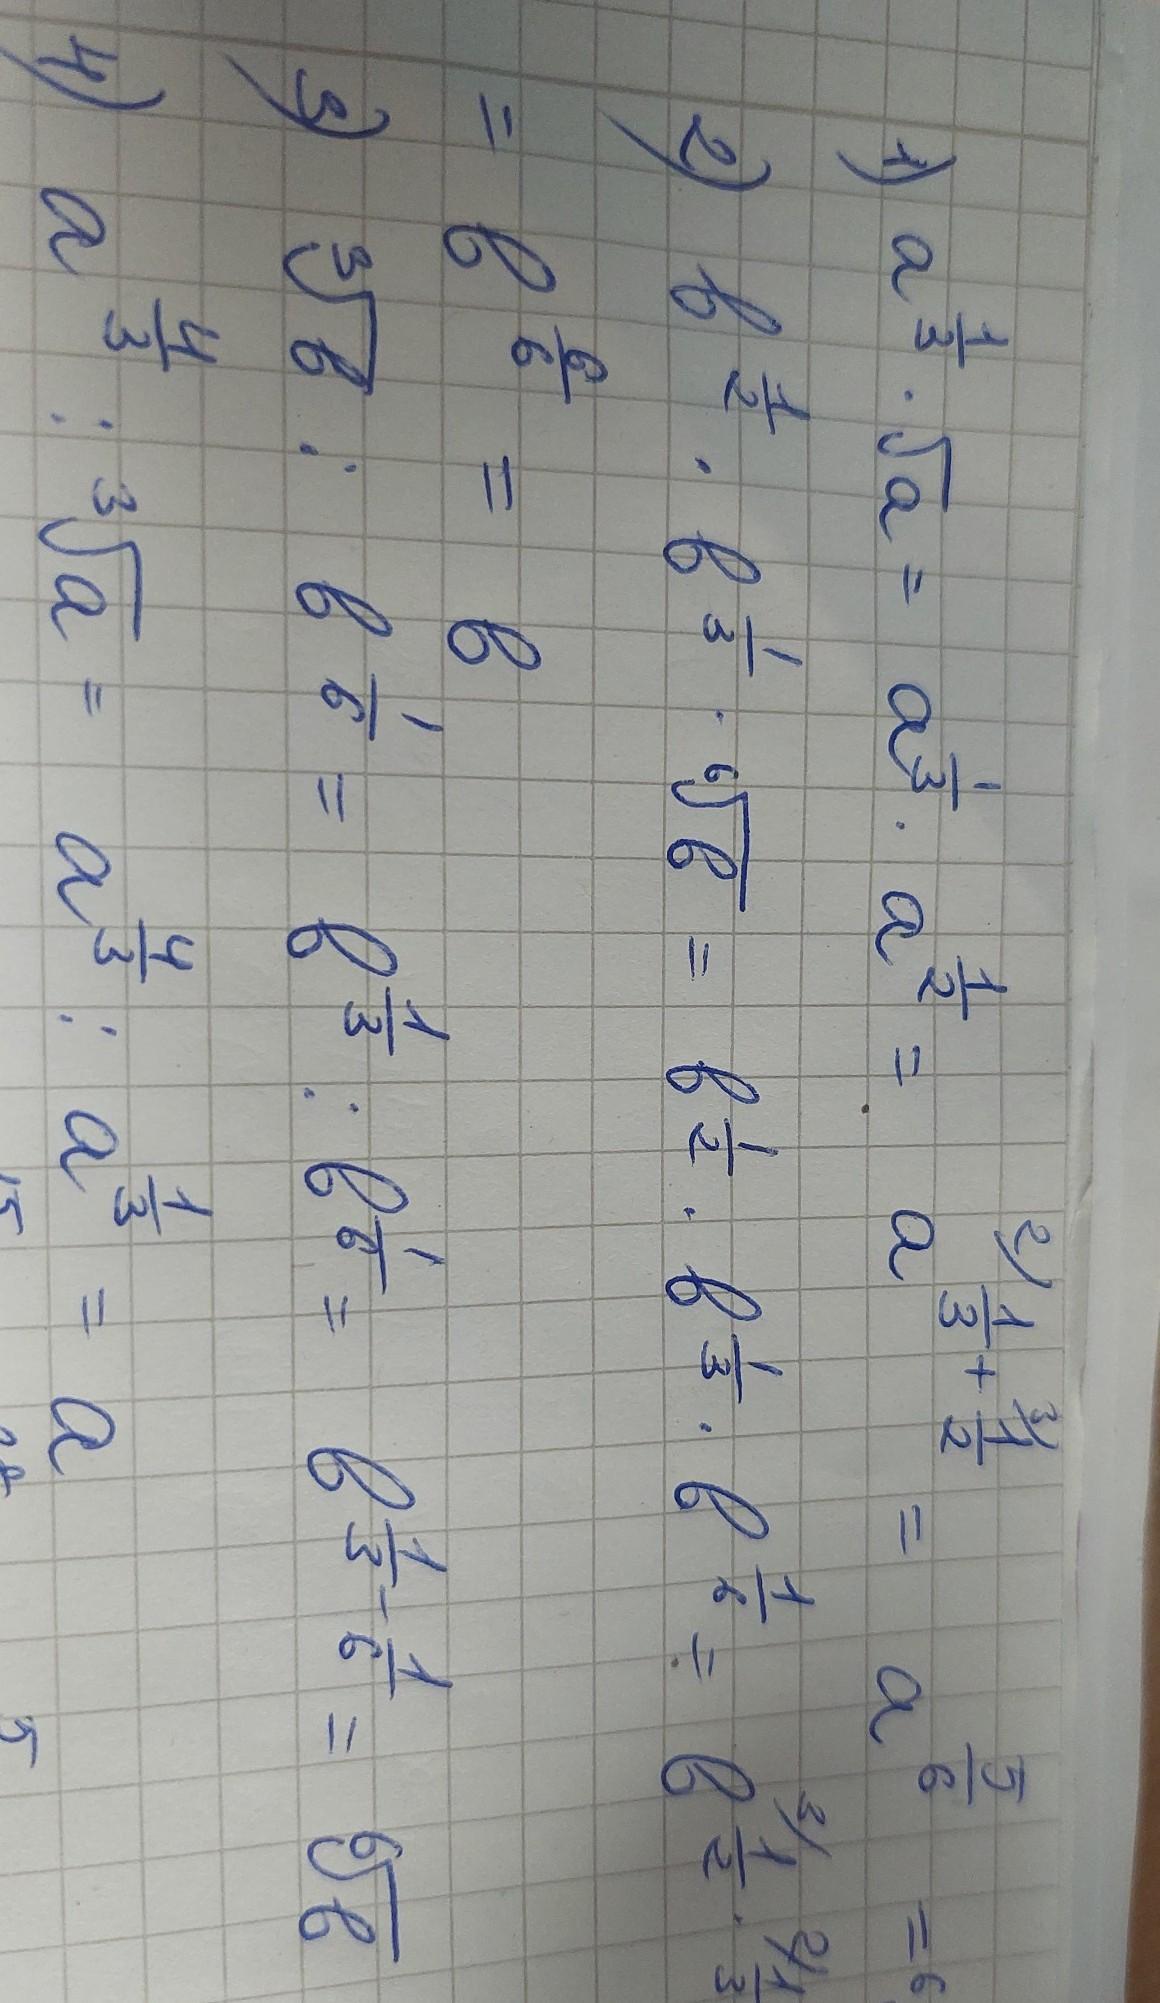 1) a^{\frac{1}{3}} · √a = a^{\frac{1}{3}} · a^{\frac{1}{2}} = a^{^{2)}\frac{1}{3} + ^{3)}\frac{1}{2}} = a^{\frac{5}{6}} = ⁶
2) b^{\frac{1}{2}} · b^{\frac{1}{3}} · ⁶√b = b^{\frac{1}{2}} · b^{\frac{1}{3}} · b^{\frac{1}{6}} = b^{^{3)}\frac{1}{2} · ^{2)}\frac{1}{3}}
= b^{\frac{6}{6}} = b
3) ³√b : b^{\frac{1}{6}} = b^{\frac{1}{3}} : b^{\frac{1}{6}} = b^{\frac{1}{3} - \frac{1}{6}} = ⁶√b
4) a^{\frac{4}{3}} : ³√a = a^{\frac{4}{3}} : a^{\frac{1}{3}} = a